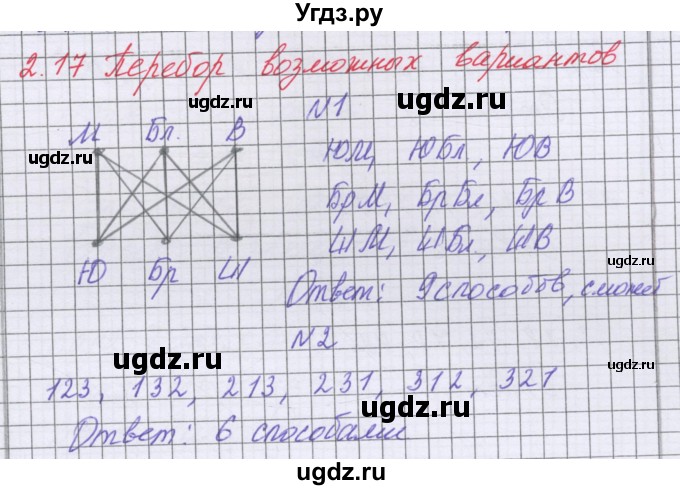 Угдз.ру
2.17 Перебор возможных вариантов
ugdz.ru ugdz.ru
№1
М Бл. В
ugdz.ru ugdz.ru
ЮМ, ЮБл, ЮВ
БрМ, БрБл, БрВ
ugdz.ru
ШМ, ШБл, ШВ
Ю Бр Ш
ugdz.ru
Ответ: 9 способов, сможет
№2
ugdz.ru ugdz.ru
123, 132, 213, 231, 312, 321
ugdz.ru
Ответ: 6 способами
ugdz.ru
ugdz.ru